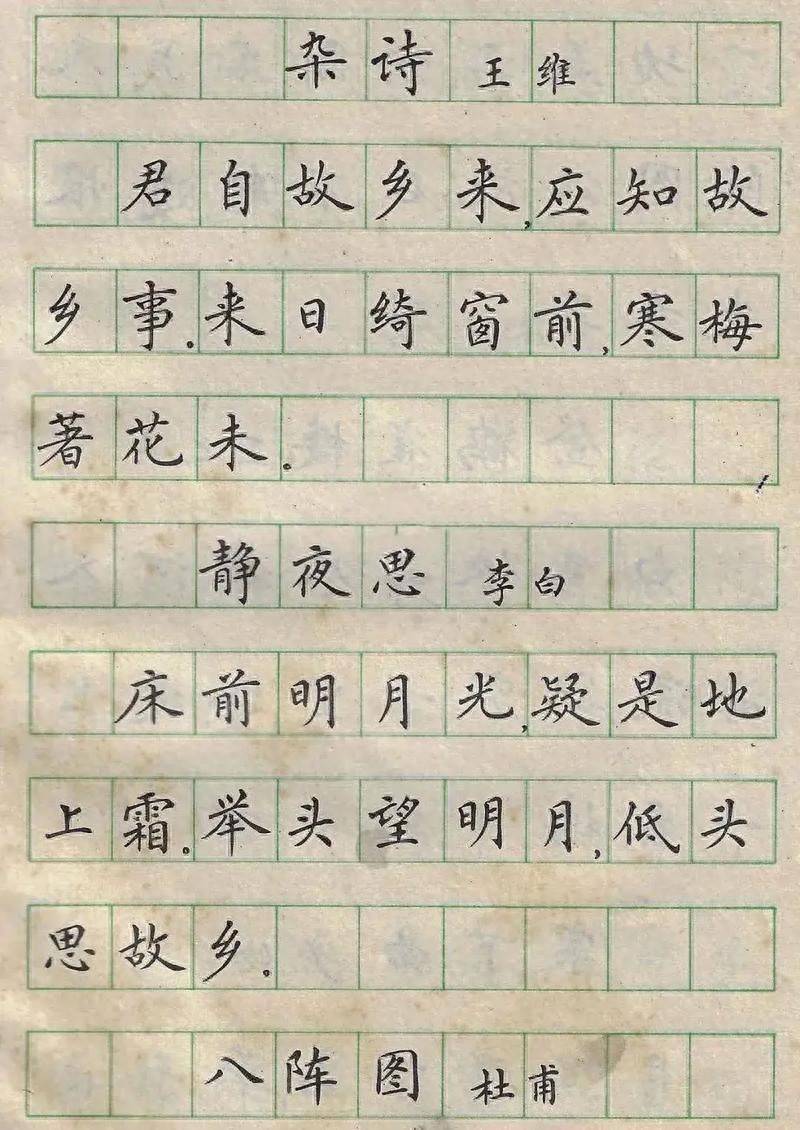 杂诗 王维
君自故乡来,应知故
乡事。来日绮窗前,寒梅
著花未。
静夜思 李白
床前明月光,疑是地
上霜。举头望明月,低头
思故乡。
八阵图 杜甫